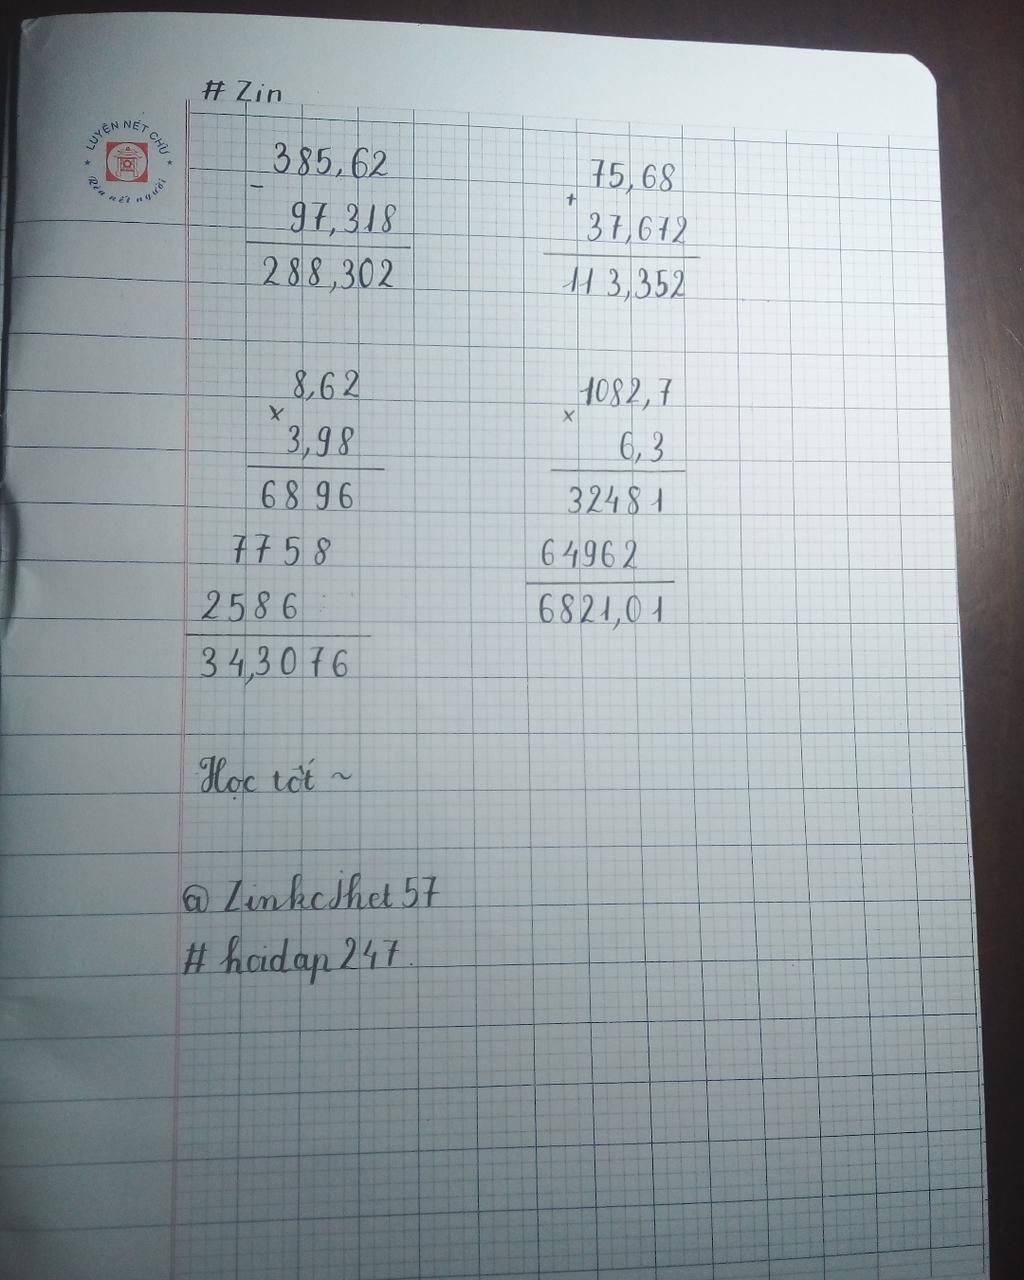 # Zin
LUYỆN NÉT CHỮ
Rèn nết người
385,62
-
97,318
288,302
75,68
+
37,672
113,352
8,62
x
3,98
6896
7758
2586
34,3076
1082,7
x
6,3
32481
64962
6821,01
Học tốt ~
@ Zinkcjhet57
# hoidap247.